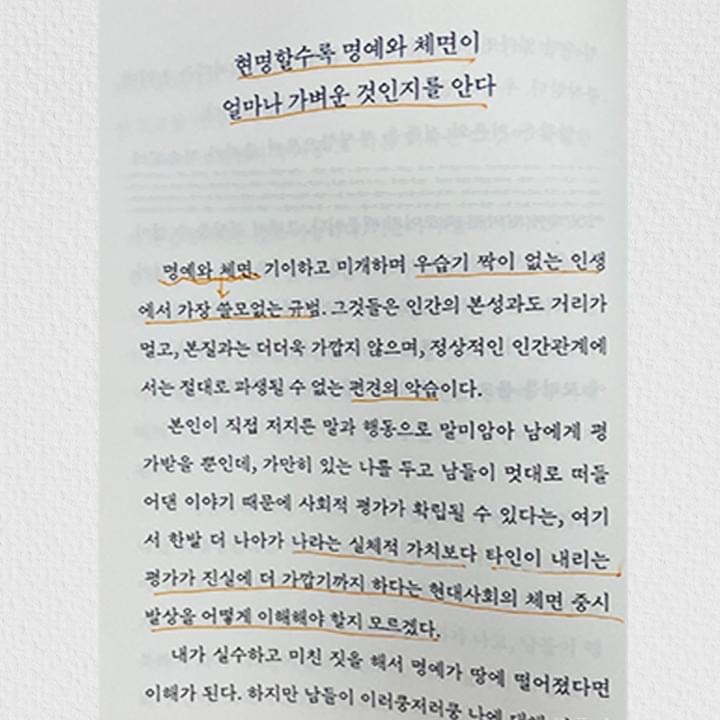 현명할수록 명예와 체면이
얼마나 가벼운 것인지를 안다
명예와 체면. 기이하고 미개하며 우습기 짝이 없는 인생
에서 가장 쓸모없는 규범. 그것들은 인간의 본성과도 거리가
멀고, 본질과는 더더욱 가깝지 않으며, 정상적인 인간관계에
서는 절대로 파생될 수 없는 편견의 악습이다.
본인이 직접 저지른 말과 행동으로 말미암아 남에게 평
가받을 뿐인데, 가만히 있는 나를 두고 남들이 멋대로 떠들
어댄 이야기 때문에 사회적 평가가 확립될 수 있다는, 여기
서 한발 더 나아가 나라는 실체적 가치보다 타인이 내리는
평가가 진실에 더 가깝기까지 하다는 현대사회의 체면 중시
발상을 어떻게 이해해야 할지 모르겠다.
내가 실수하고 미친 짓을 해서 명예가 땅에 떨어졌다면
이해가 된다. 하지만 남들이 이러쿵저러쿵 나에